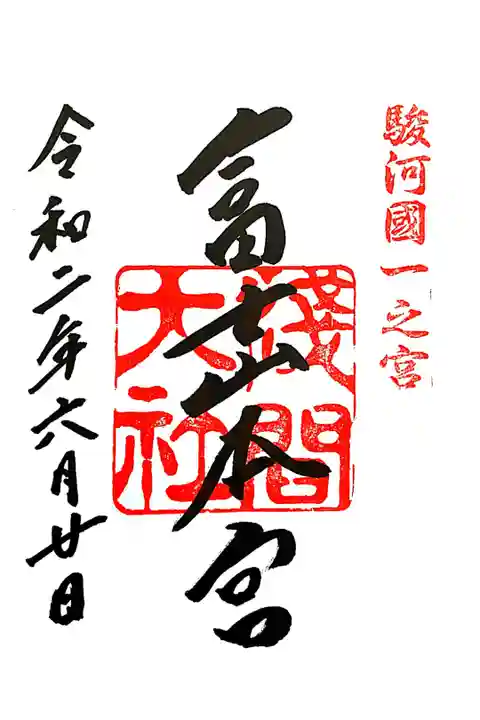 駿河國一之宮
富士山本宮
淺間大社
令和二年六月廿日